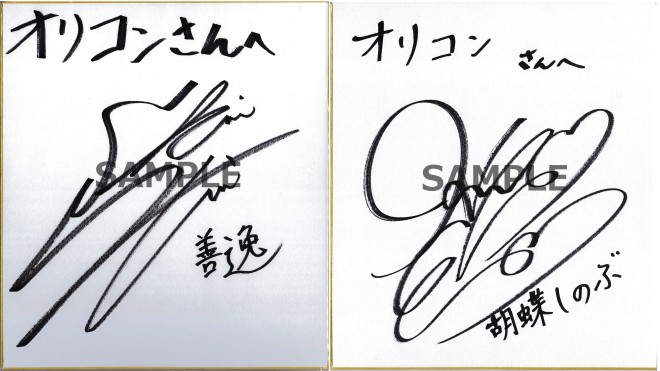 オリコンさんへ
SAMPLE
善逸
オリコン さんへ
SAMPLE
胡蝶しのぶ